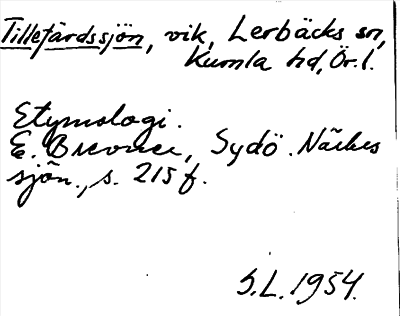 Tillefärdssjön, vik, Lerbäcks sn,
Kumla hd, Ör.l.
Etymologi.
E. Brevner, Sydö. Närkes
sjön., s. 215 f.
S.L. 1954.